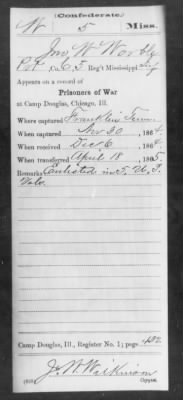 (Confederate.)
W 5 Miss.
Jno W Worthy
Pvt, Co. C, 5 Reg't Mississippi Inf
Appears on a record of
Prisoners of War
at Camp Douglas, Chicago, Ill.
Where captured Franklin Tenn
When captured Nov 30, 1864.
When received Dec 6, 1864
When transferred April 18, 1865.
Remarks Enlisted in 5. U.S.
Vols.
Camp Douglas, Ill., Register No. 1; page 492
J. W. Wilkinson
Copyist.